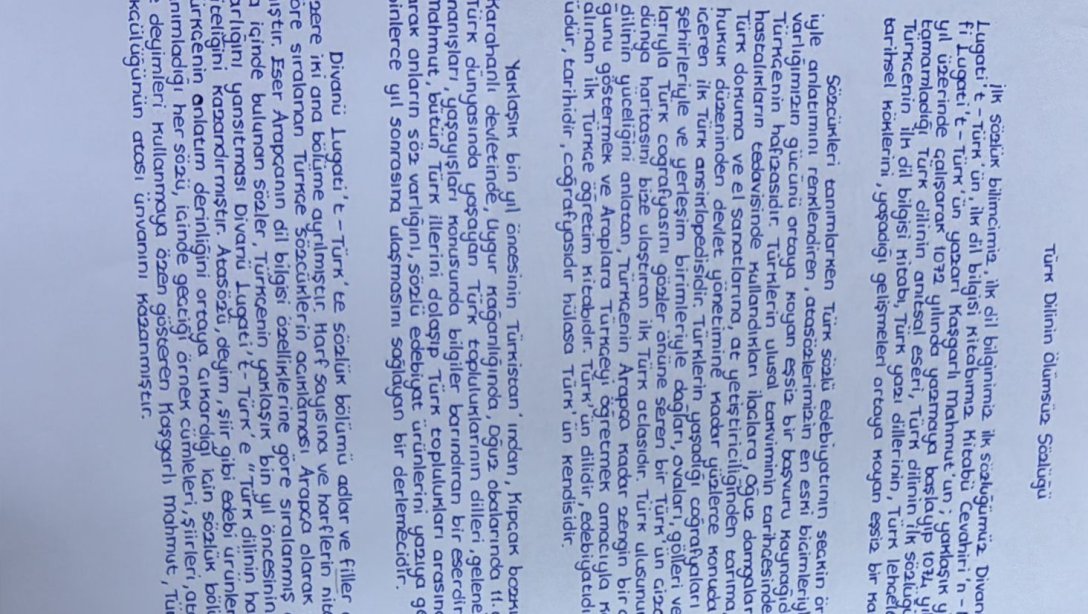 Türk Dilinin Ölümsüz Sözlüğü
ilk sözlük bilimcimiz, ilk dil bilginimiz ilk sözlüğümüz Divan
Lugati't-Türk'ün, ilk dil bilgisi kitabımız Kitabü Cevahiri'n-
fi Lugati't-Türk'ün yazarı Kaşgarlı Mahmut'un; yaklaşık
yıl üzerinde çalışarak 1072 yılında yazmaya başlayıp 1074
tamamladığı Türk dilinin anıtsal eseri, Türk dilinin ilk
Türkçenin ilk dil bilgisi kitabı, Türk yazı dillerinin, Türk
tarihsel köklerini, yaşadığı gelişmeleri ortaya koyan eşsiz bir
Sözcükleri tanımlarken Türk sözlü edebiyatının seçkin
iyle anlatımını renklendiren, atasözlerimizin en eski biçimleriyle
varlığımızın gücünü ortaya koyan eşsiz bir başvuru
Türkçenin hafızasıdır. Türklerin ulusal takviminin tarihçesinde
hastalıkların tedavisinde kullandıkları ilaçlara, Oğuz damgaları
Türk dokuma ve el sanatlarına, at yetiştiriciliğinden tarıma,
hukuk düzeninden devlet yönetimine kadar yüzlerce konuda
içeren ilk Türk ansiklopedisidir. Türklerin yaşadığı coğrafyaları
şehirleriyle ve yerleşim birimleriyle dağları, ovaları, gölleri ve
larıyla Türk coğrafyasını gözler önüne seren bir Türk'ün
dünya haritasını bize ulaştıran ilk Türk atlasıdır. Türk ulusunun
dilinin yüceliğini anlatan, Türkçenin Arapça kadar zengin bir
ğunu göstermek ve Araplara Türkçeyi öğretmek amacıyla
alınan ilk Türkçe öğretim kitabıdır. Türk'ün dilidir, edebiyatıdır
üdür, tarihidir, coğrafyasıdır hülasa Türk'ün kendisidir.
Yaklaşık bin yıl öncesinin Türkistan'ından, Kıpçak
Karahanlı devletinde, Uygur kağanlığında, Oğuz obalarında 11.
Türk dünyasında yaşayan Türk topluluklarının dilleri,
inanışları, yaşayışları konusunda bilgiler barındıran bir eserdir
Mahmut, bütün Türk illerini dolaşıp Türk toplulukları
arak onların söz varlığını, sözlü edebiyat ürünlerini yazıya
binlerce yıl sonrasına ulaşmasını sağlayan bir derlemecidir.
Divanü Lugati't-Türk'te sözlük bölümü adlar ve fiiller
zere iki ana bölüme ayrılmıştır. Harf sayısına ve harflerin
öre sıralanan Türkçe sözcüklerin açıklaması Arapça olarak
ıştır. Eser Arapçanın dil bilgisi özelliklerine göre sıralanmış
a içinde bulunan sözler, Türkçenin yaklaşık bin yıl öncesinin
arlığını yansıtması Divanü Lugati't-Türk'e "Türk dilinin
iteliğini kazandırmıştır. Atasözü, deyim, şiir gibi edebi
ürkçenin anlatım derinliğini ortaya çıkardığı için sözlük
anımladığı her sözü, içinde geçtiği örnek cümleleri, şiirleri,
e deyimleri kullanmaya özen gösteren Kaşgarlı Mahmut,
kçülüğünün atası ünvanını kazanmıştır.